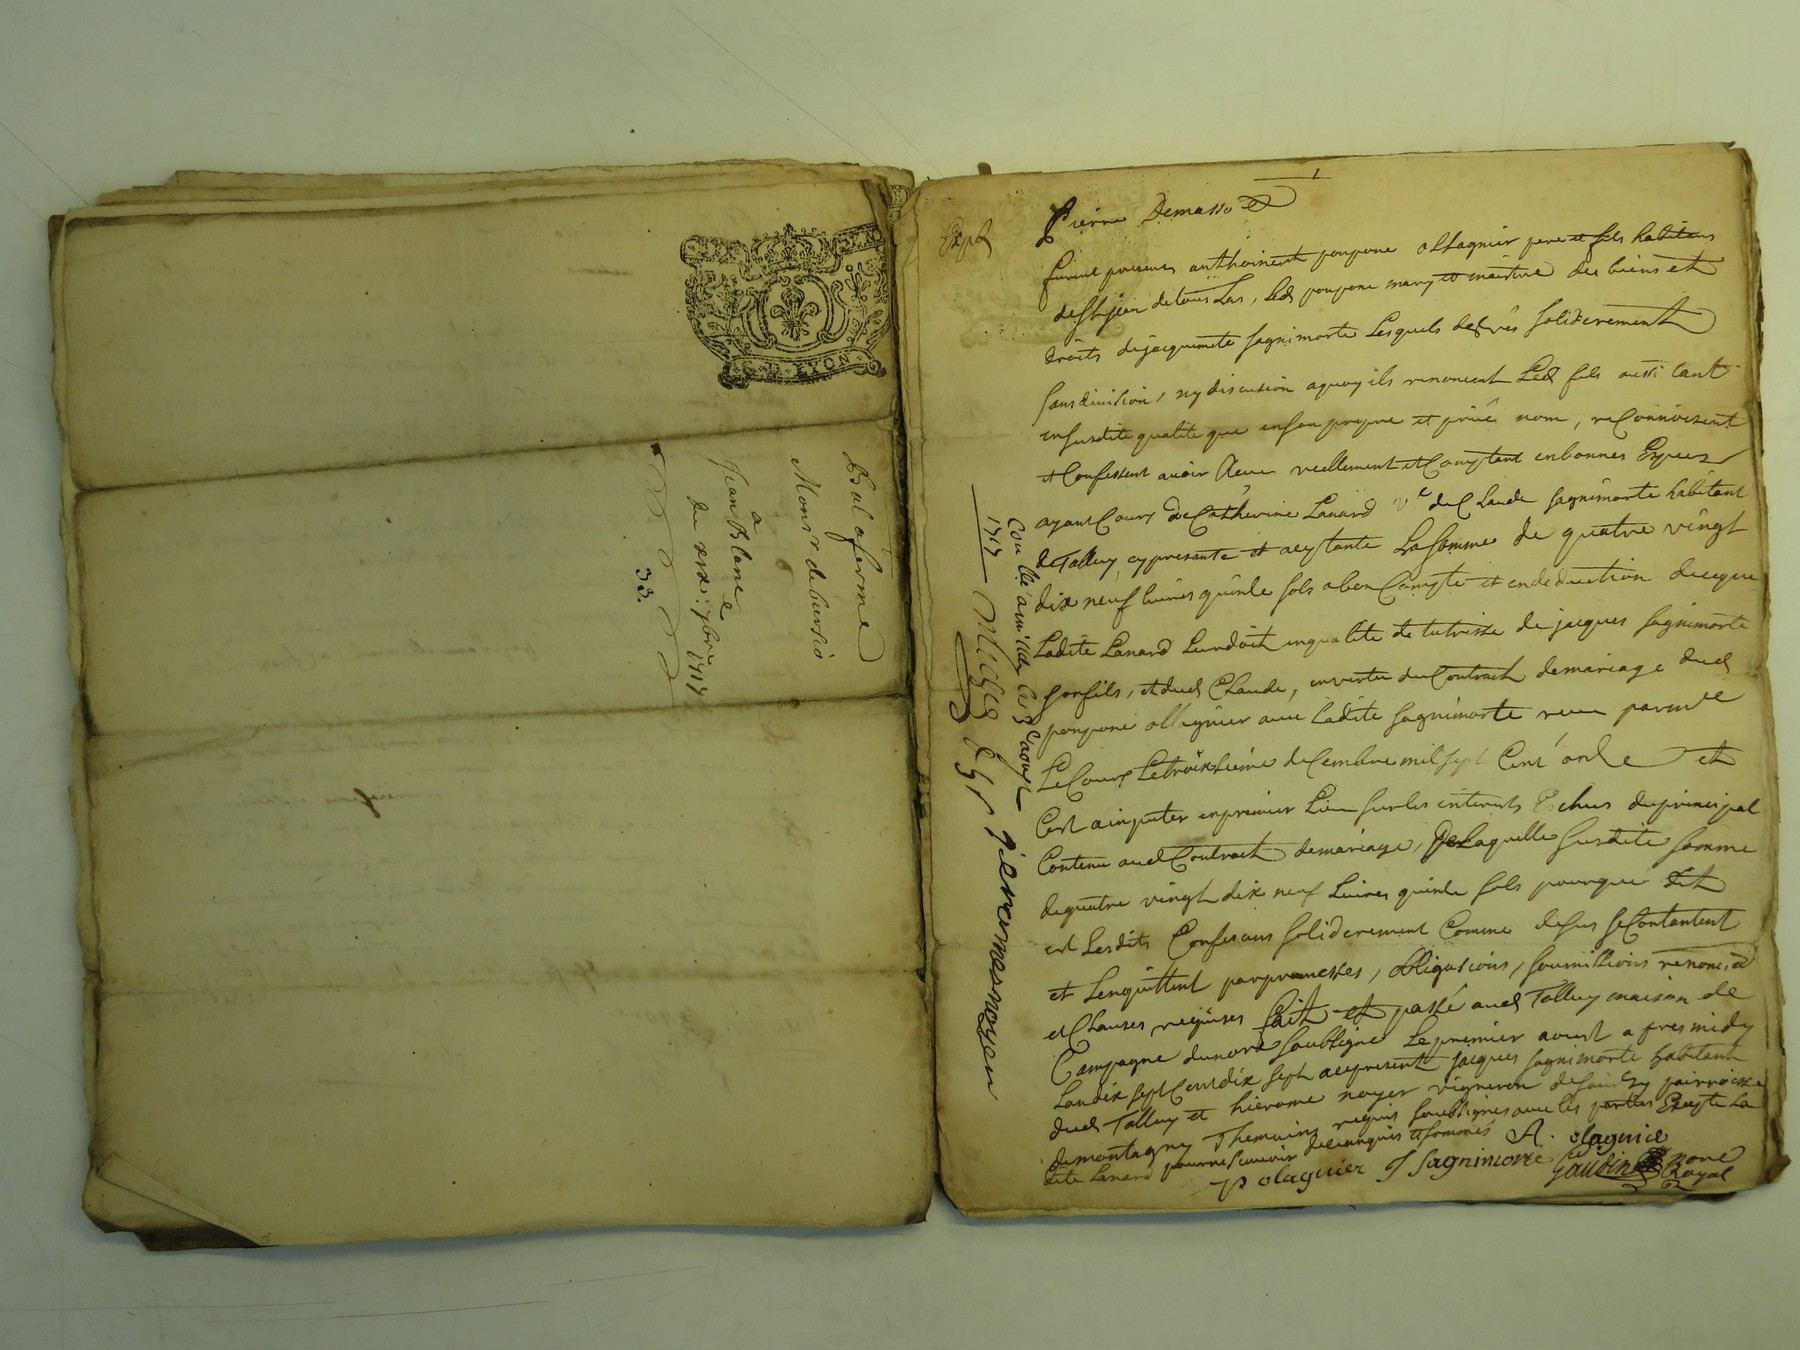 LYON
Bail aferme
Mons.r debursio
a
Jean Blanc
du xix.e 9bre 1717
33.
Expd
Pierre Demasso &
furent presens anthoinent poupone ollagnier pere et fils habitans
de St jean de tous Las, Led poupone mary et maistre des biens et
droits de jacquemete sagnimorte Lesquels de grés soliderement
sans division, ny discution aquoy ils renoncent Led fils aussi tant
en susdite qualite que enson propre et privé nom, reConnoissent
et Confessent avoir Receu reellement et Comptant enbonnes Especes
ayant Cours de Catherine Lanard v.e de Claude sagnimorte habitant
de Talluy cy presante et aceptante La somme de quatre vingt
dix neuf livres quinze sols abon Compte et endeduction de ce que
Ladite Lanard Leur doit enqualite de tutrisse de jacques sagnimorte
son fils, et dud Claude, en vertu du Contrach de mariage dud
poupone ollagnier avec Ladite sagnimorte receu par
Le Cours Le troisieme decembre mil sept Cent onze et
Cest a imputer en premier Lieu sur les interests Echus du principal
Contenu aud Contrach de mariage, De Laquelle susdite somme
de quatre vingt dix neuf Livres quinze sols pour que dit
est Lesdits Confessans soliderement Comme desus se Contantent
et Lenquittent par promesses, obligations, soumissions renonc.on
et Clauses requises fait et passé aud Talluy maison de
Campagne du no.re soubsigné Le premier aoust apres midy
Lan dix sept Cent dix sept ace present jacques sagnimorte habitant
dud Talluy et hierome noyer vigneron de parroisse
de montagny Themoins requis soubsignes avec les parties Exepte La
dite Lanard pour ne scavoir de ce enquis et sommés
A. olagnier
p olagnier J sagnimorte Gaudin no.re Royal
Con.lé a mil Le 3 aoust
1717
jérememenoyeu